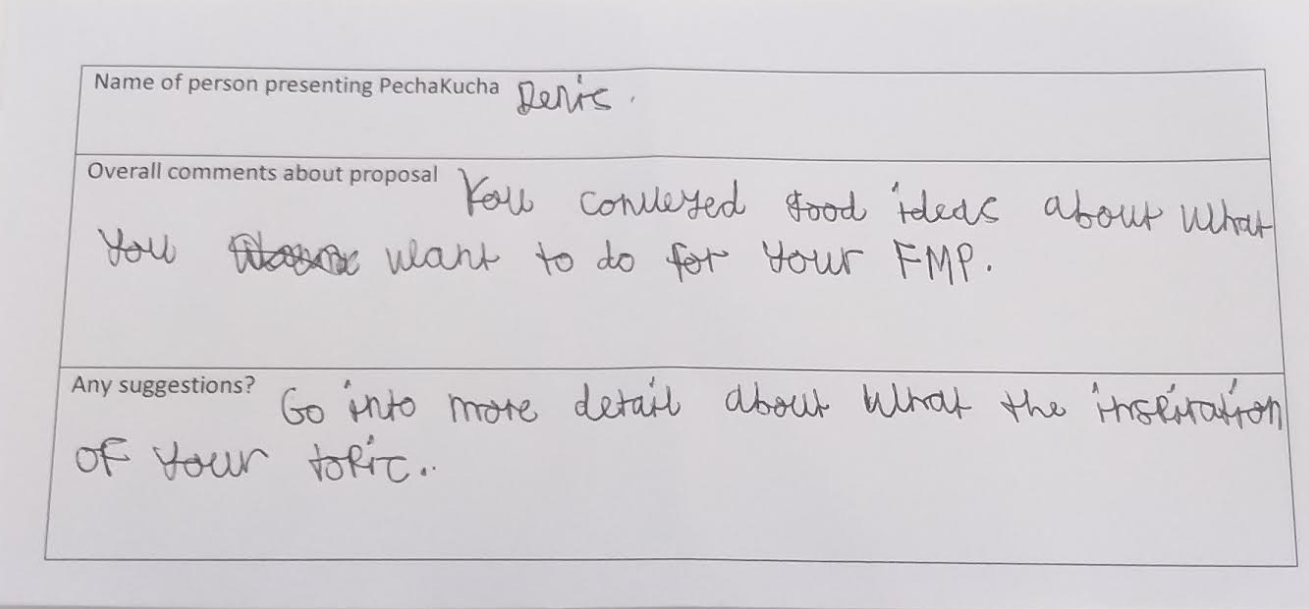 Name of person presenting PechaKucha Denis.
Overall comments about proposal You conveyed good ideas about what
you want to do for your FMP.
Any suggestions? Go into more detail about what the inspiration
of your topic..